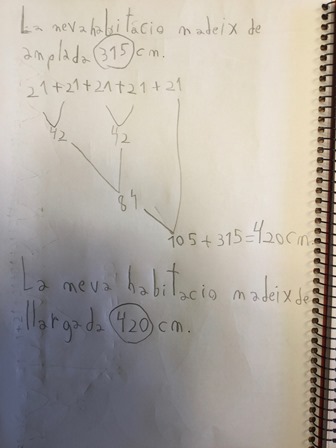 La neva habitacio madeix de
amplada 315 cm.
21+21+21+21+21
42 42
84
105+315=420cm.
La meva habitacio madeix de
llargada 420 cm.